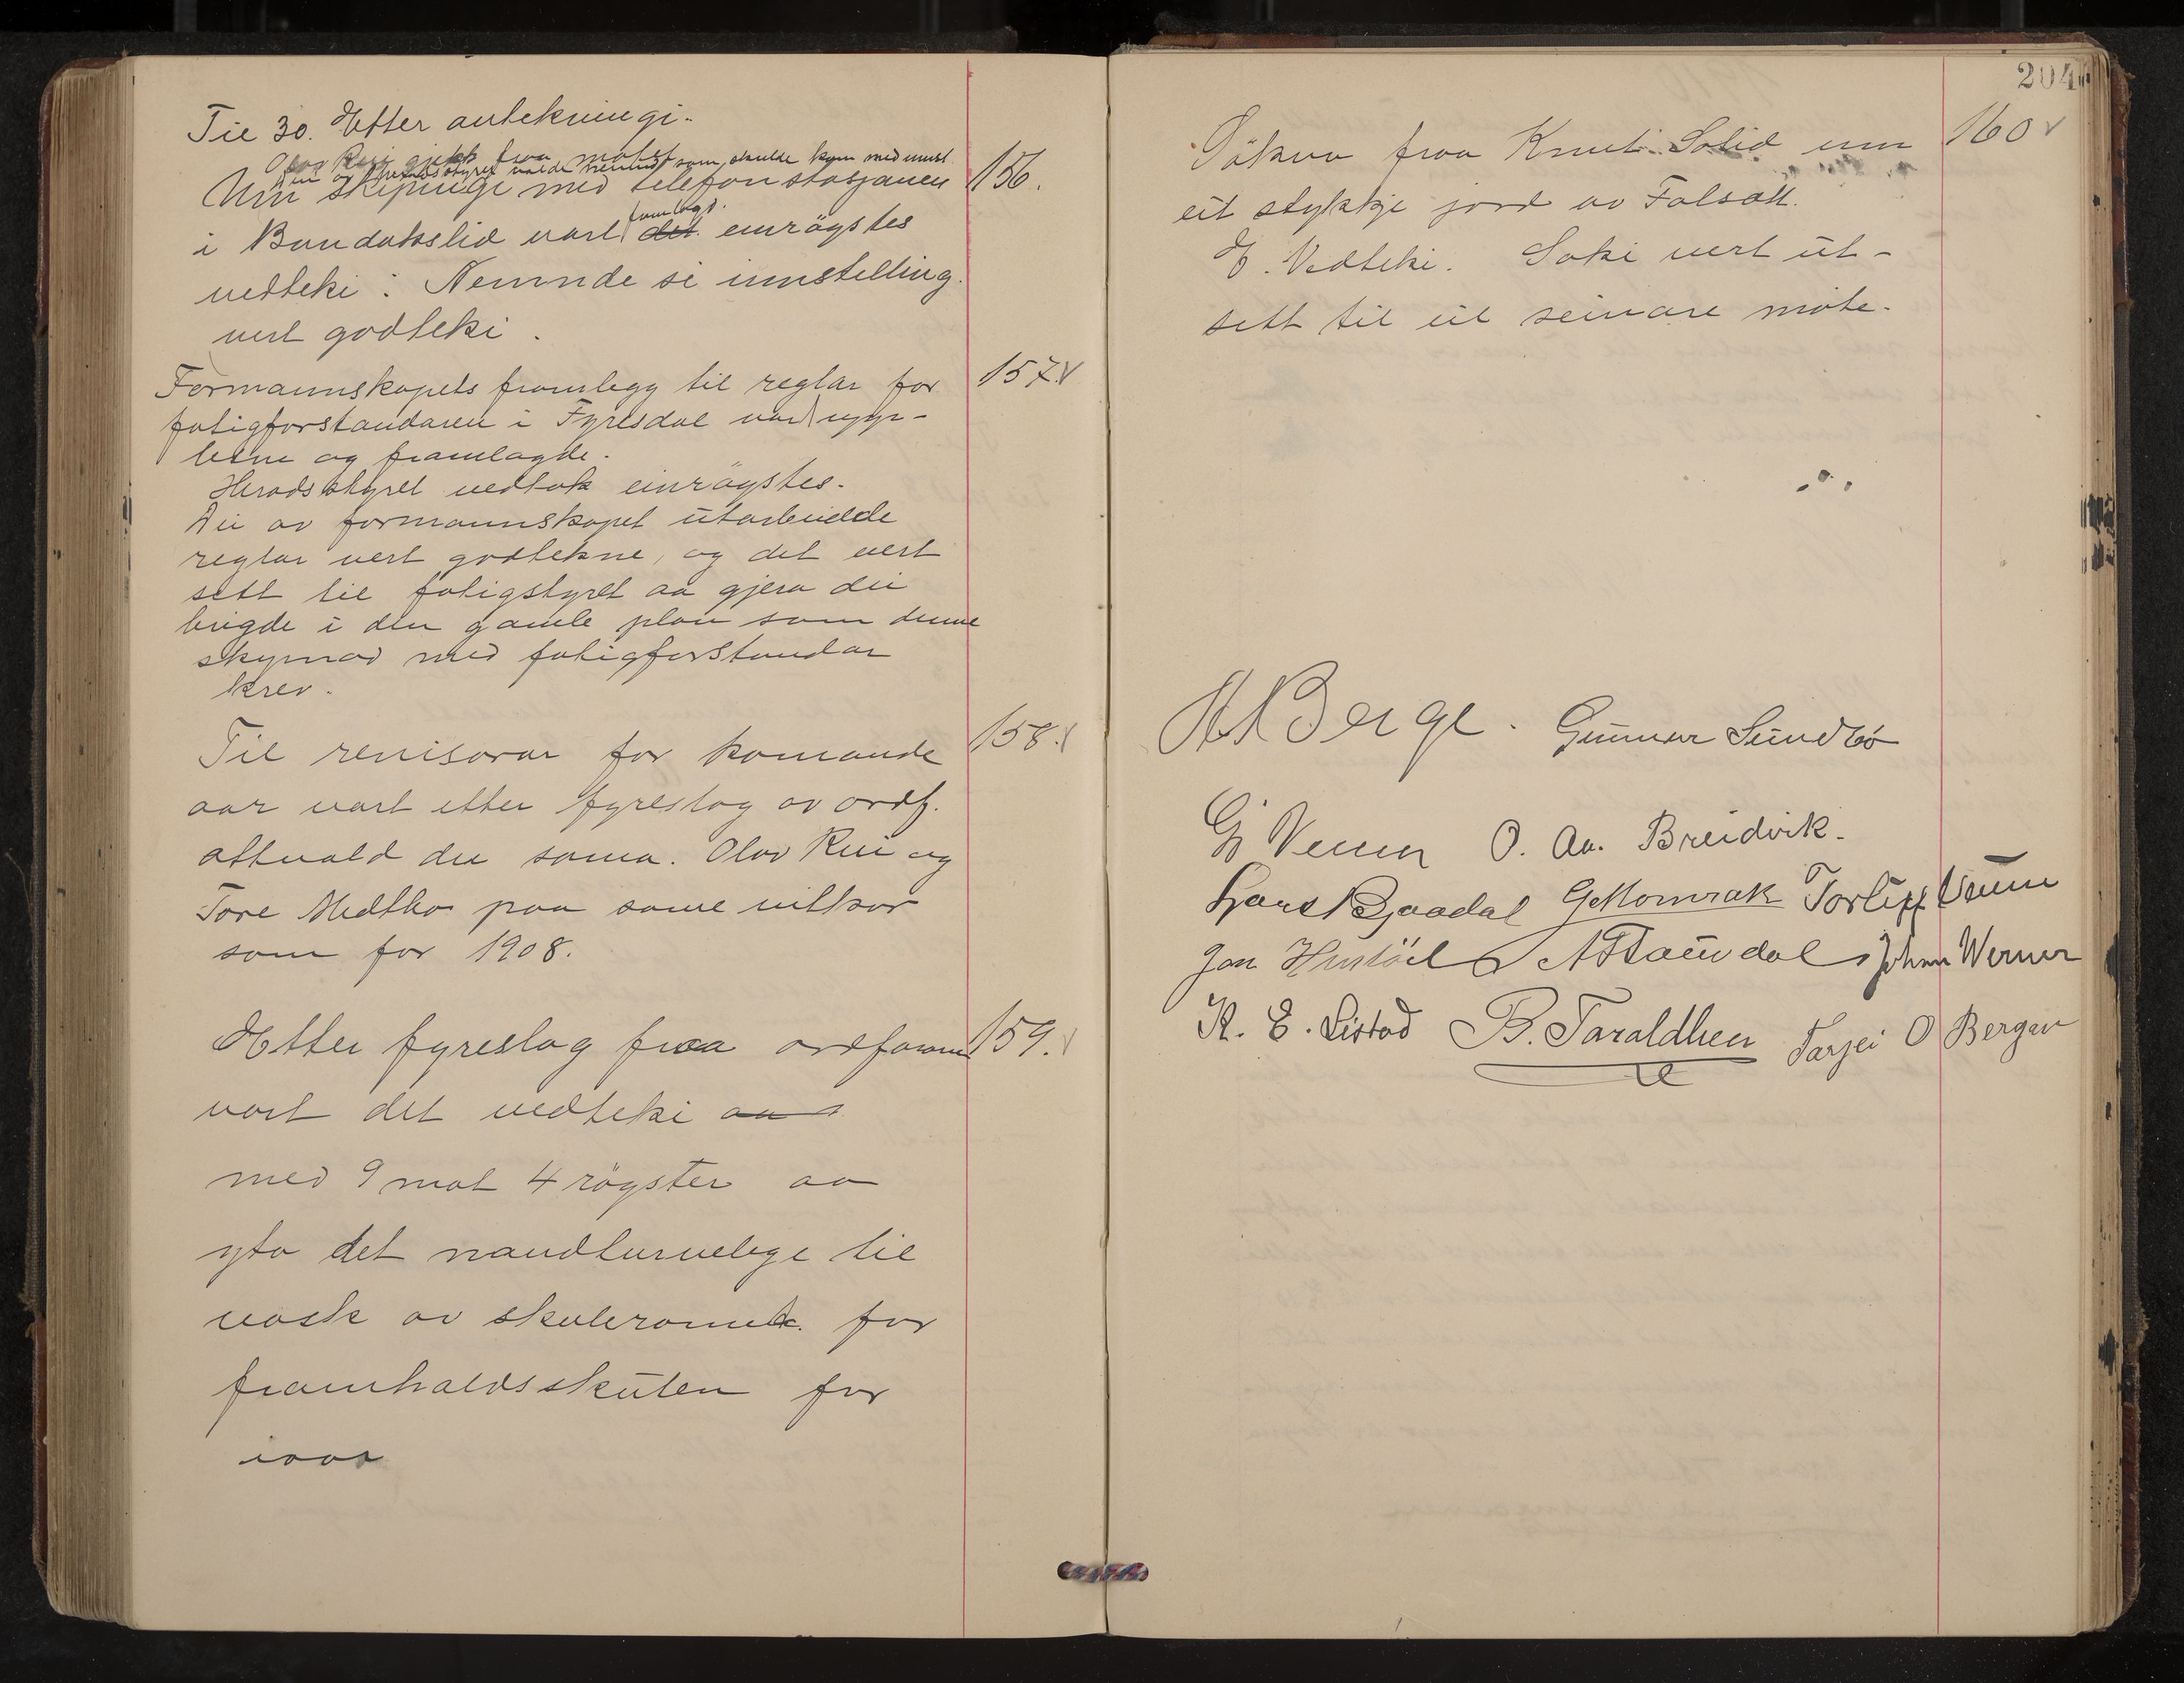 Til 30. Etter antekningi.
Olav Rui gjekk fraa møtet
Den av heradsstyret valde nemnd som skulde kom med innst.
Um skipingi med telefonstasjonen 156.
i Bondalslid vart framlagd. det einrøystes
vedteki: Nemnde si innstelling
vert godteki.
Formannskapets framlegg til reglar for 157.
fatigforstandaren i Fyresdal vart upp-
lesne og framlagde.
Heradsstyret vedtok einrøystes.
Dei av formannskapet utarbeidde
reglar vert godtekne, og det vert
sett til fatigstyret aa gjera dei
brigde i den gamle plan som denne
skipnad med fatigforstandar
krev.
Til revisorar for komande 158.
aar vart etter fyreslag av ordf.
attvald dei sama. Olav Rui og
Tore Midtbø paa same vilkor
som for 1908.
Etter fyreslag fraa ordforar 159.
vart det vedteki aa
med 9 mot 4 røyster aa
yta det naudturvelege til
vask av skuleromet for
framhaldsskulen for
iaar
204
Søknv fraa Knut Solid um 160
eit stykkje jord av Folsatt.
E. Vedteki. Saki vert ut-
sett til eit seinare møte.
H K Berge. Gunnar Sundbø
G Veum O. Aa. Breidvik.
Hans K Gaadal G Momrak Torleiff Veum
Jon Hustöil A Staurdal Johan Werner
K. E. Listad B. Taraldlien Tarjei O Bergan